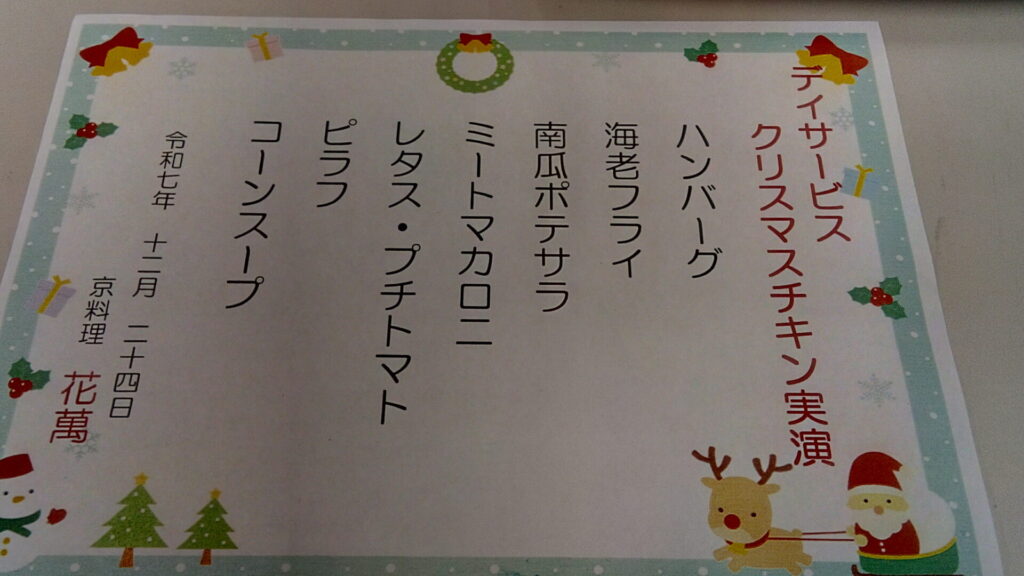 デイサービス
クリスマスチキン実演
ハンバーグ
海老フライ
南瓜ポテサラ
ミートマカロニ
レタス・プチトマト
ピラフ
コーンスープ
令和七年 十二月 二十四日
京料理 花萬